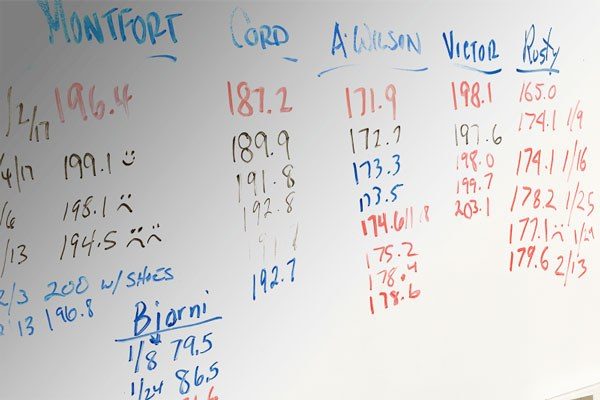 MONTFORT CORD A.WILSON VICTOR Rusty
1/2/17 196.4 187.2 171.9 198.1 165.0
174.1 1/9
189.9 172.7 197.6
4/17 199.1
191.8 173.3 198.0 174.1 1/16
192.8 173.5 199.7 178.2 1/25
/6 198.1
174.6 203.1 177.1
/13 194.5
175.2 179.6 2/13
192.7 178.4
178.6
2/3 200 W/ SHOES
13 196.8
Bjorni
1/8 79.5
1/24 86.5